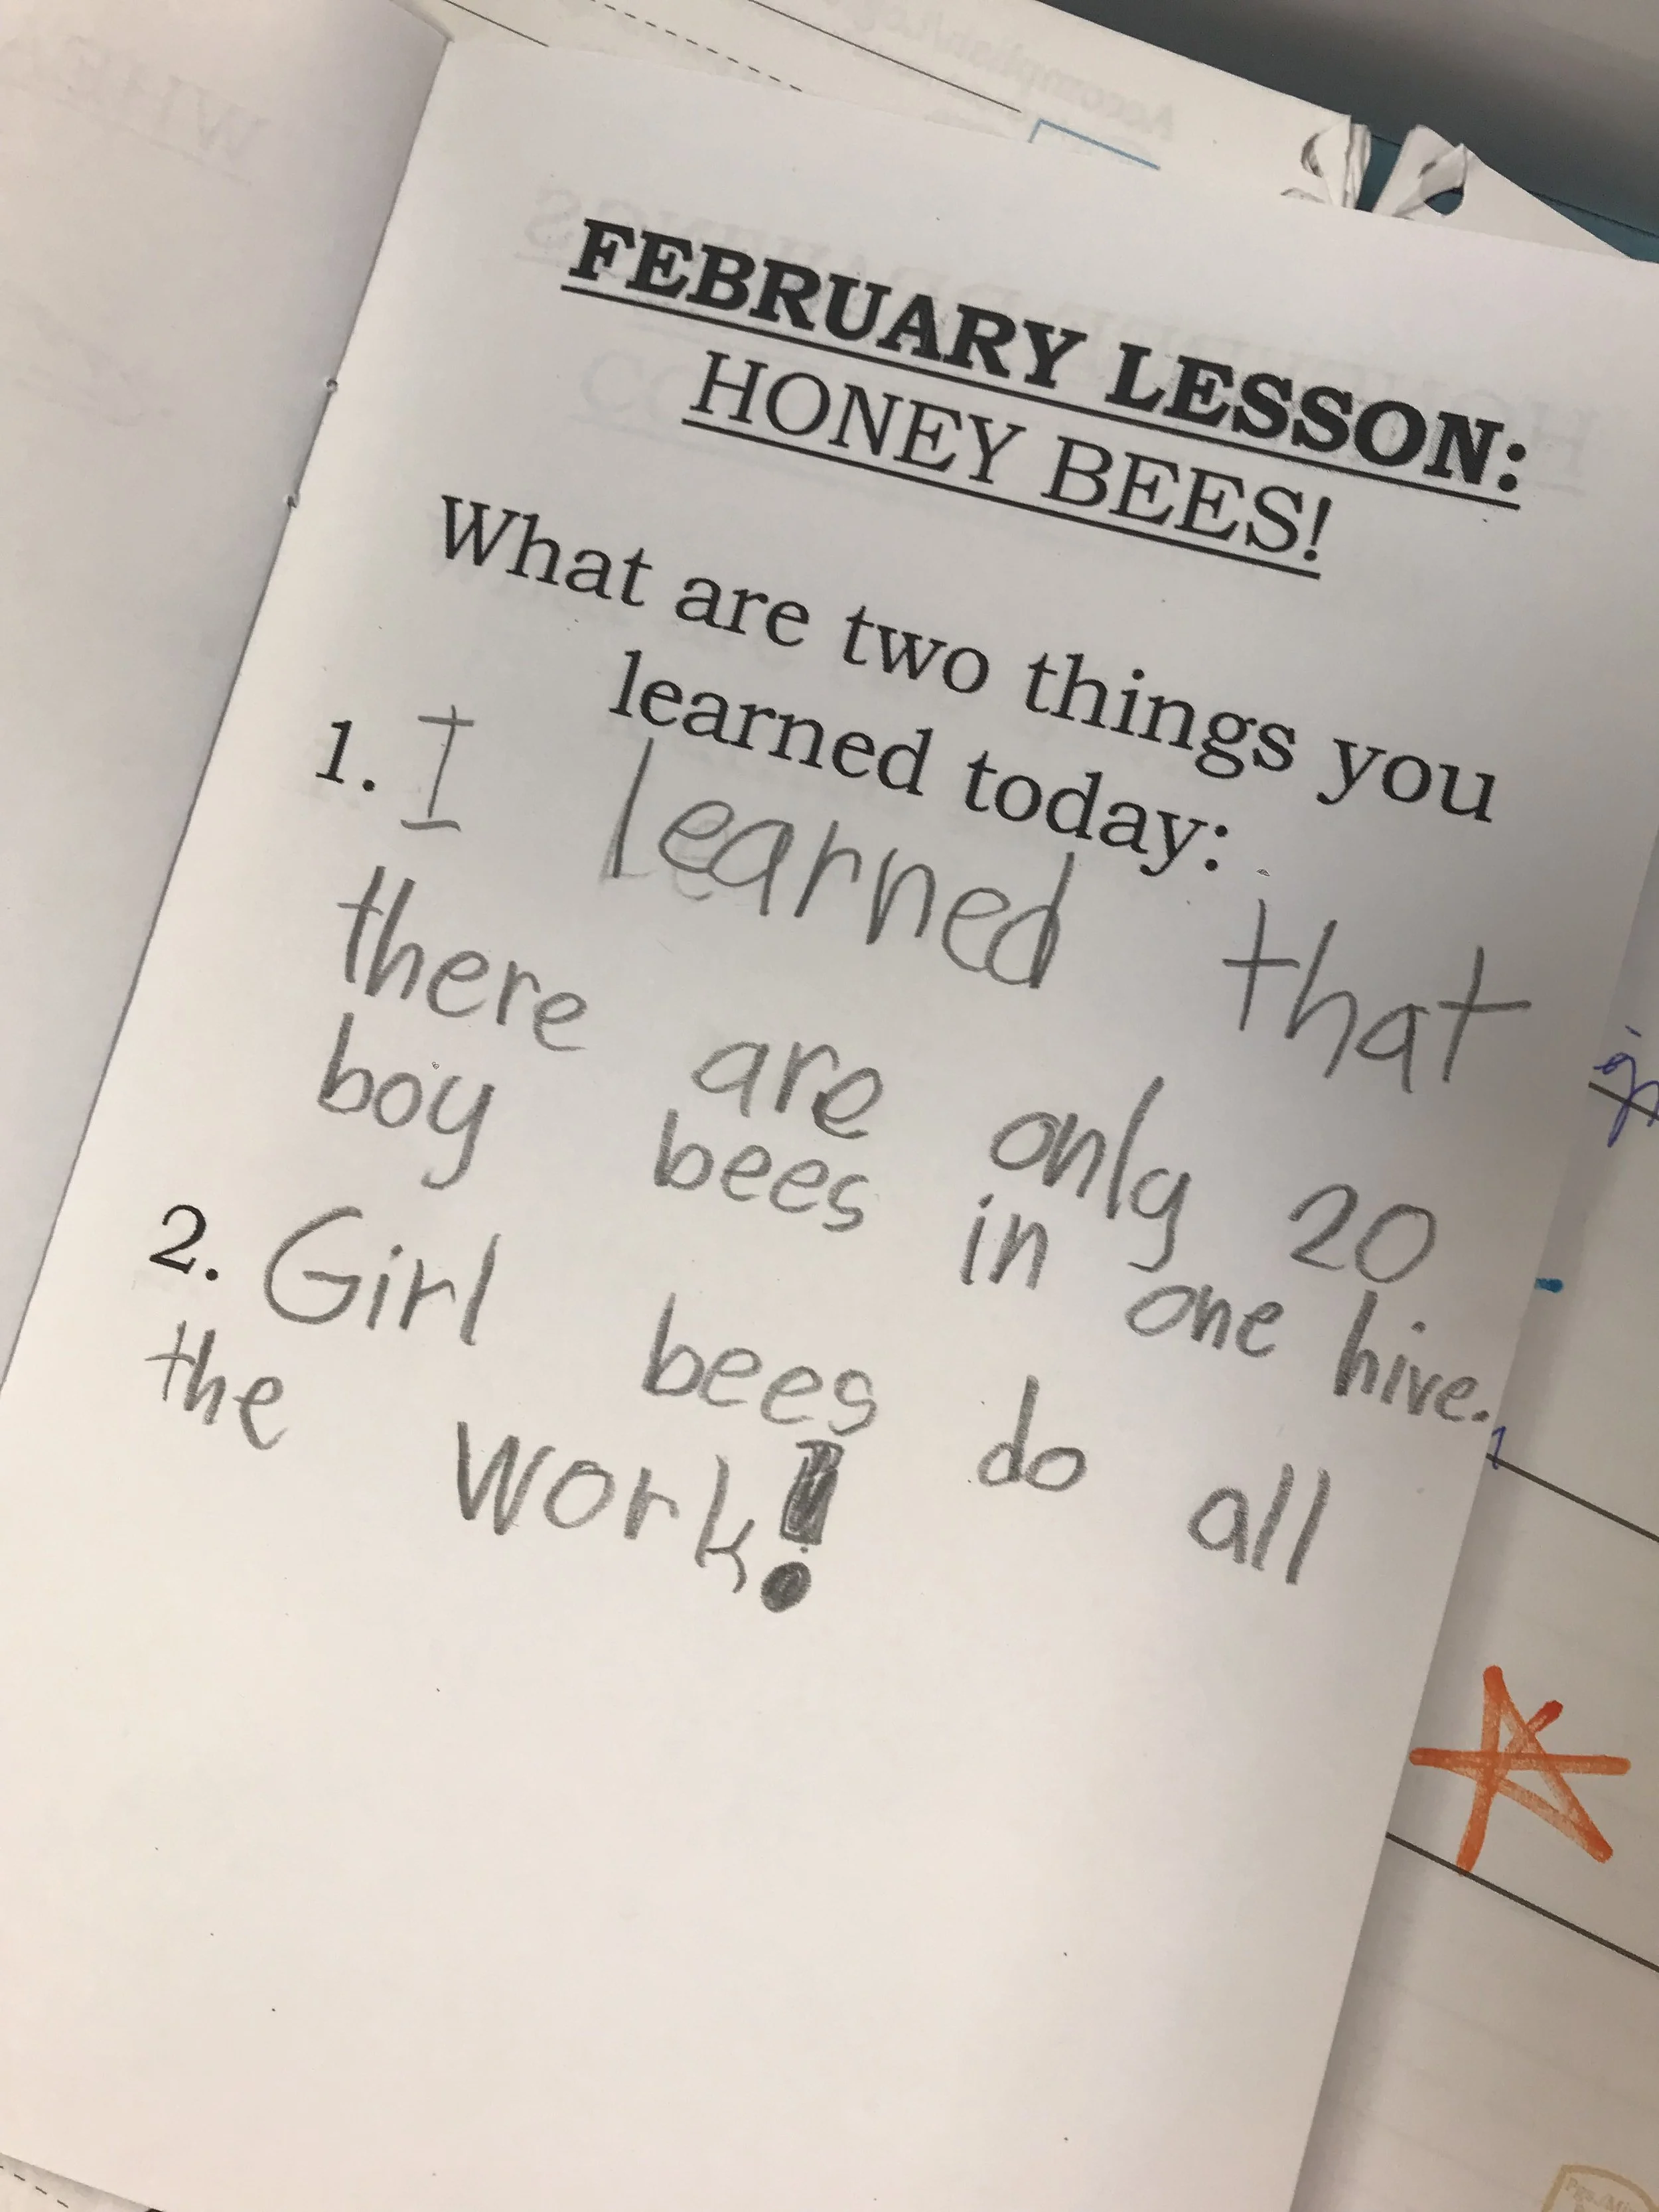 FEBRUARY LESSON:
HONEY BEES!
What are two things you
learned today:
1. I learned that
there are only 20
boy bees in one hive.
2. Girl bees do all
the work!